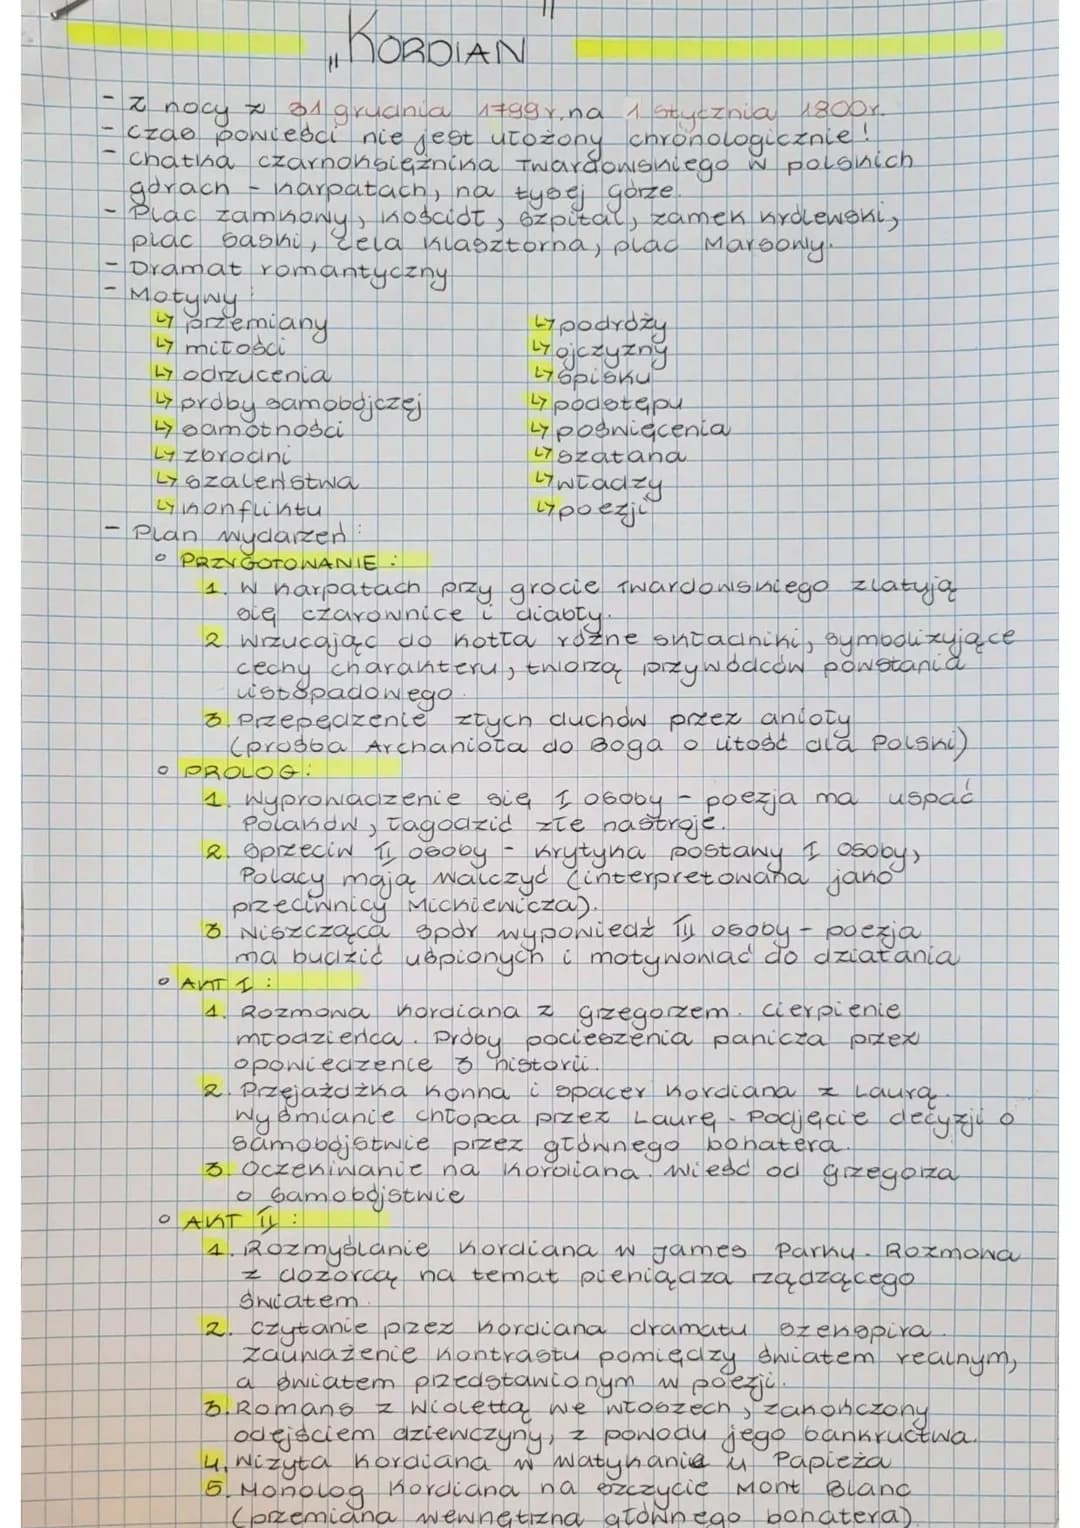 „KORDIAN"
- Z nocy z 31 grudnia 1799r. na 1 stycznia 1800r.
- Czas powieści nie jest ułożony chronologicznie!
- Chatka czarnoksiężnika Twardowskiego w polskich
górach - karpatach, na łysej górze.
- Plac zamkowy, kościół, szpital, zamek królewski,
plac saski, cela klasztorna, plac Marsowy.
- Dramat romantyczny
- Motywy:
↳ przemiany ↳ podróży
↳ miłości ↳ ojczyzny
↳ odrzucenia ↳ spisku
↳ próby samobójczej ↳ podstępu
↳ samotności ↳ poświęcenia
↳ zbrodni ↳ szatana
↳ szaleństwa ↳ władzy
↳ konfliktu ↳ poezji
- Plan wydarzeń:
o PRZYGOTOWANIE:
1. W karpatach przy grocie Twardowskiego zlatują
się czarownice i diabły.
2. Wrzucając do kotła różne składniki, symbolizujące
cechy charakteru, tworzą przywódców powstania
listopadowego.
3. Przepędzenie złych duchów przez anioły
(prośba Archanioła do Boga o litość dla Polski)
o PROLOG:
1. Wyprowadzenie się I osoby - poezja ma uspać
Polaków, łagodzić złe nastroje.
2. Sprzeciw II osoby - krytyka postawy I osoby,
Polacy mają walczyć (interpretowana jako
przeciwnicy Mickiewicza).
3. Niszcząca spór wypowiedź III osoby - poezja
ma budzić uśpionych i motywować do działania
o AKT I:
1. Rozmowa Kordiana z grzegorzem. Cierpienie
młodzieńca. Próby pocieszenia panicza przez
opowiedzenie 3 historii.
2. Przejażdżka konna i spacer Kordiana z Laurą.
Wyśmianie chłopca przez Laurę. Podjęcie decyzji o
samobójstwie przez głównego bohatera.
3. Oczekiwanie na Kordiana. Wieść od grzegorza
o samobójstwie
o AKT II:
1. Rozmyślanie Kordiana w James Parku. Rozmowa
z dozorcą na temat pieniądza rządzącego
światem.
2. Czytanie przez Kordiana dramatu Szekspira.
Zauważenie kontrastu pomiędzy światem realnym,
a światem przedstawionym w poezji.
3. Romans z Wiolettą we włoszech, zakończony
odejściem dziewczyny, z powodu jego bankructwa.
4. Wizyta Kordiana w Watykanie u Papieża
5. Monolog Kordiana na szczycie Mont Blanc
(przemiana wewnętrzna głównego bohatera)